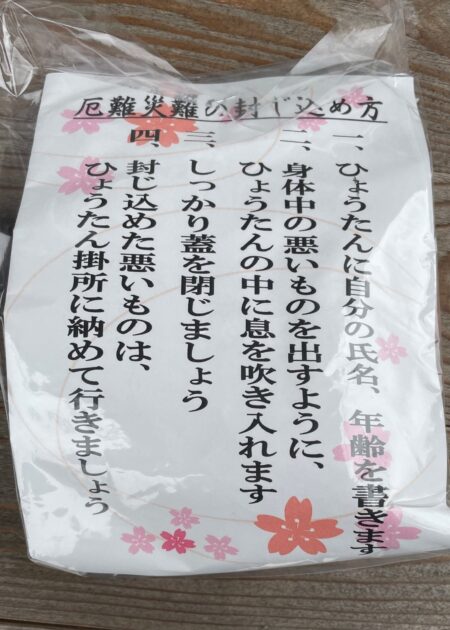 厄難災難の封じ込め方
一、ひょうたんに自分の氏名、年齢を書きます
二、身体中の悪いものを出すように、
ひょうたんの中に息を吹き入れます
三、しっかり蓋を閉じましょう
四、封じ込めた悪いものは、
ひょうたん掛所に納めて行きましょう